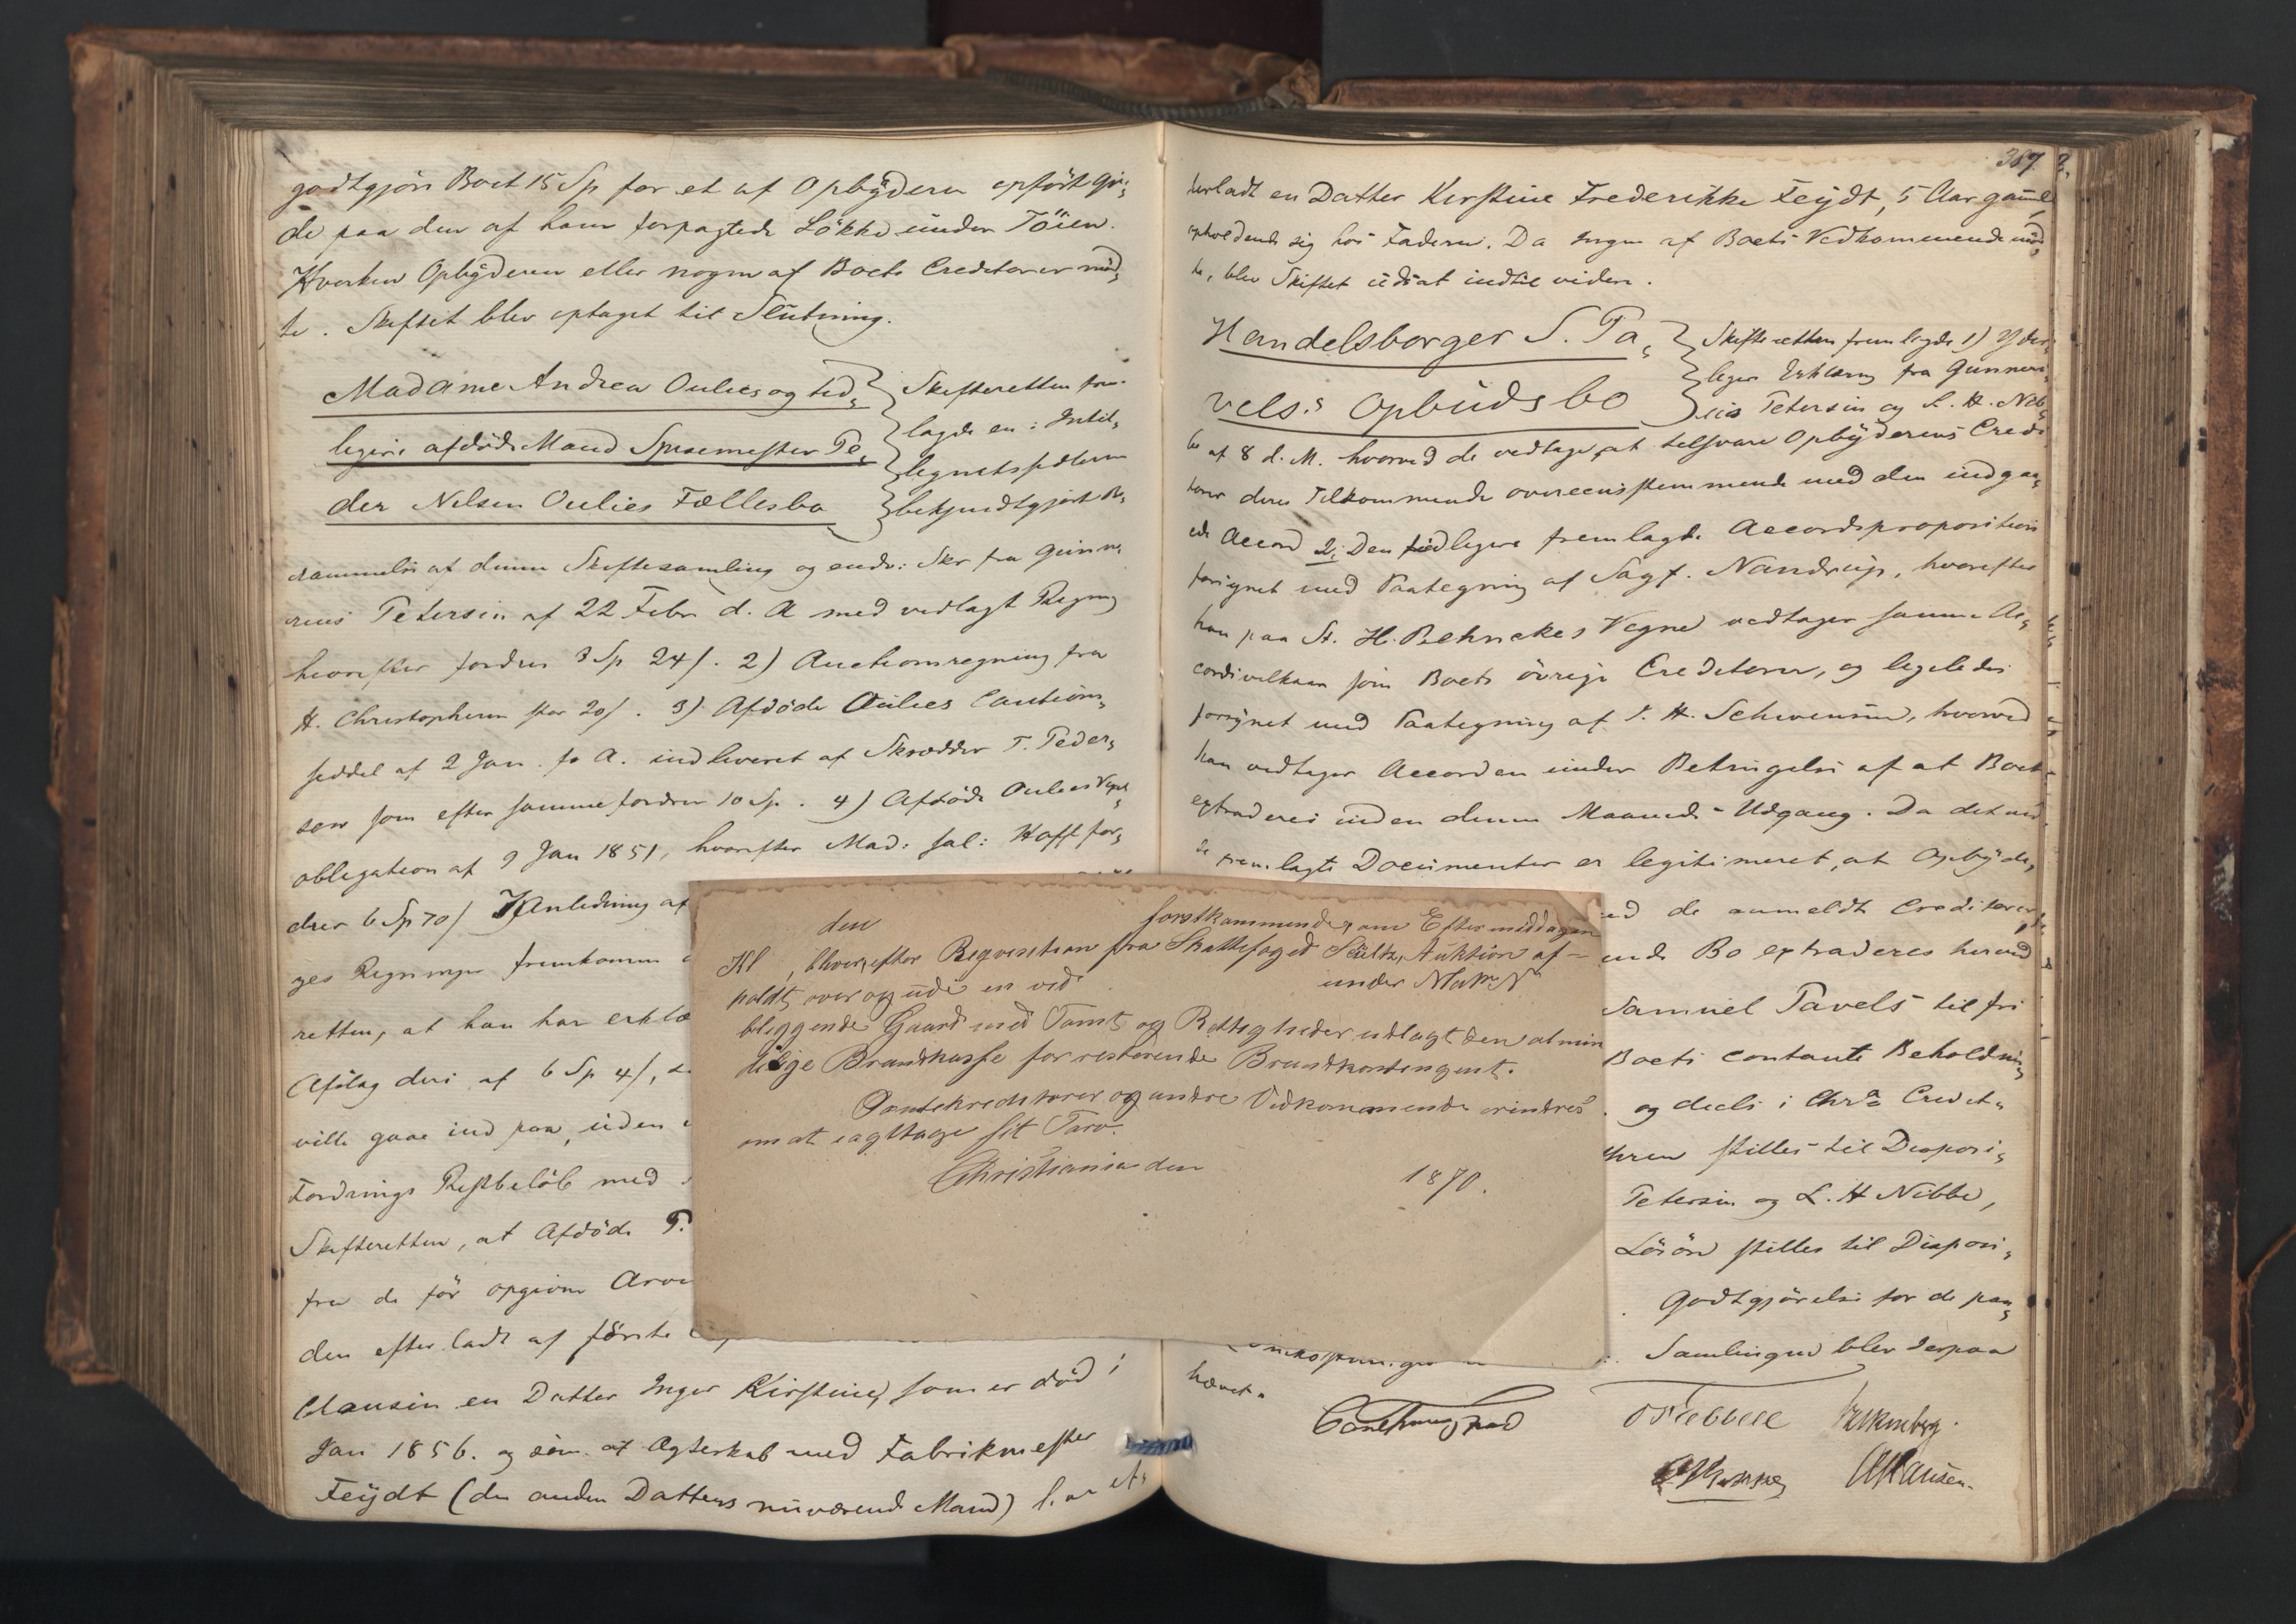 godtgjøre Boet 15 Sp for et af Opbyderen opført Gjer-
de paa den af ham forpagtede Løkke under Tøien.
Hverken Opbyderen eller nogen af Boets Creditorer mød-
te. Skiftet blev optaget til Slutning.
Madame Andrea Oulies og tid-
ligere afdøde Mand Spisemester Pe-
der Nilsen Oulies Fællesbo
Skifteretten frem-
lagde en i Intel-
ligentssedlerne
bekjendtgjort Be-
rammelse af denne Skiftesamling og endv: Skr fra Gunne-
rius Petersen af 22 Febr d. A med vedlagt Regning
hvorefter fordres 3 Sp 24 s. 2) Auctionsregning fra
H. Christophersen stor 20 s. 3) Afdøde Oulies Cautions-
seddel af 2 Jan. f. A. indleveret af Skrædder T. Peder-
sen som efter samme fordrer 10 Sp. 4) Afdøde Oulies
obligation af 9 Jan 1851, hvorefter Mad: sal: Hoff for-
drer 6 Sp 70 s I Anledning af
ges Regninger fremkommen
retten, at han har erklæ
Afslag deri af 6 Sp 4 s,
ville gaae ind paa, uden
Fordrings Restbeløb med
Skifteretten, at Afdøde P.
fra de før opgivne Arvi
den efterladt af første
Clausen en Datter Inger Kirstine, som er død i
Jan 1856. og som af Ægteskab med Fabrikmester
Feydt (den anden Datters nuværende Mand) har ef-
387.
terladt en Datter Kirstine Frederikke Feydt, 5 Aar gammel
opholdende sig hos Faderen. Da Ingen af Boets Vedkommende mød-
te, blev Skiftet udsat indtil videre.
Handelsborger S. Pa-
vels's Opbudsbo
Skifteretten fremlagde 1) Yder-
ligere Erklæring fra Gunneri-
us Petersen og L. H. Nib-
be af 8 d. M. hvorved de vedtage at tilsvare Opbyderens Credi
torer deres Tilkommende overeensstemmende med den indgaa-
ede Accord 2; Den tidligere fremlagte Accordsproposition
forsynet med Paategning af Sagf. Nandrup, hvorefter
han paa St. H. Behnckes Vegne vedtager samme Ac-
cordsvilkaar som Boets øvrige Creditorer, og ligeledes
forsynet med Paategning af J. H. Schwensen, hvorved
han vedtager Accorden under Betingelse af at Boet
extraderes inden denne Maaneds Udgang. Da det ved
de fremlagte Documenter er legitimeret, at Opbyde-
ed de anmeldte Creditorer
ende Bo extraderes herved
Samuel Pavels til fri
Boets contante Beholdning
og deels i Chra Credit-
hren stilles til Disposi-
Petersen og L. H Nibbe,
Løsøre stilles til Disposi-
Godtgjørelse for de paa-
Samlingen blev derpaa
hævet.
AHansen.
den forstkommende, om Eftermiddagen
Kl , bliver, efter Reqvisition fra Skattefoged Schultz, Auktion af-
holdt over og udi en ved under Matr. No
beliggende Gaard med Tomt og Rettigheder udlagt den almin
delige Brandkasse for resterende Brandkontingent.
Pantekreditorer og andre Vedkommende erindres
om at iagttage sit Tarv.
Christiania den 1870.